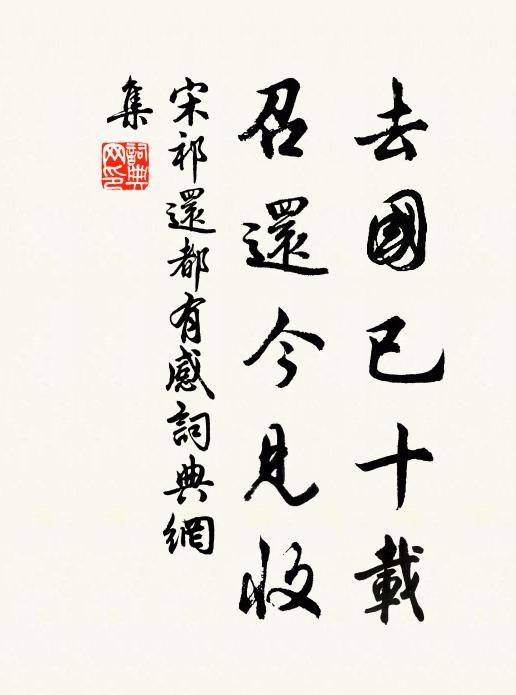 去國已十載
召還今見收
宋祁還都有感詞典網
集
詞典网印